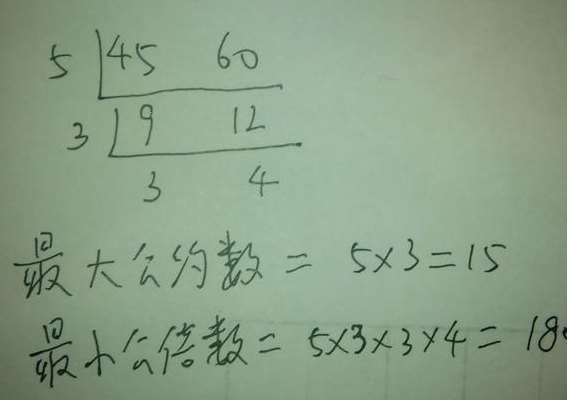 5 45 60
3 9 12
3 4
最大公约数 = 5×3=15
最小公倍数 = 5×3×3×4 = 18